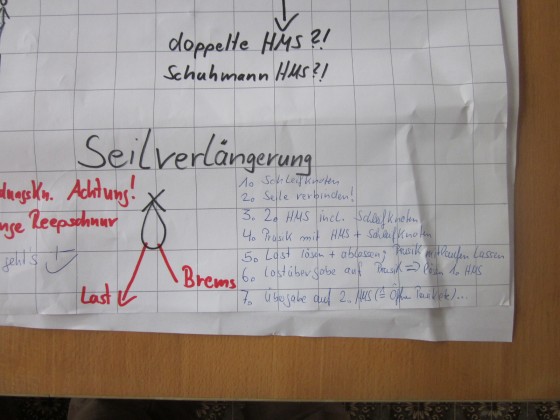 doppelte HMS?!
Schuhmann HMS?!
Seilverlängerung
dungskn. Achtung!
nge Reepschnur
geht's
Last
Brems
1. Schleifknoten
2. Seile verbinden!
3. 2. HMS incl. Schleifknoten
4. Prusik mit HMS + Schleifknoten
5. Last lösen + ablassen, Prusik mitlaufen lassen
6. Lastübergabe auf Prusik ⇒ 1. HMS
7. Übergabe auf 2. HMS